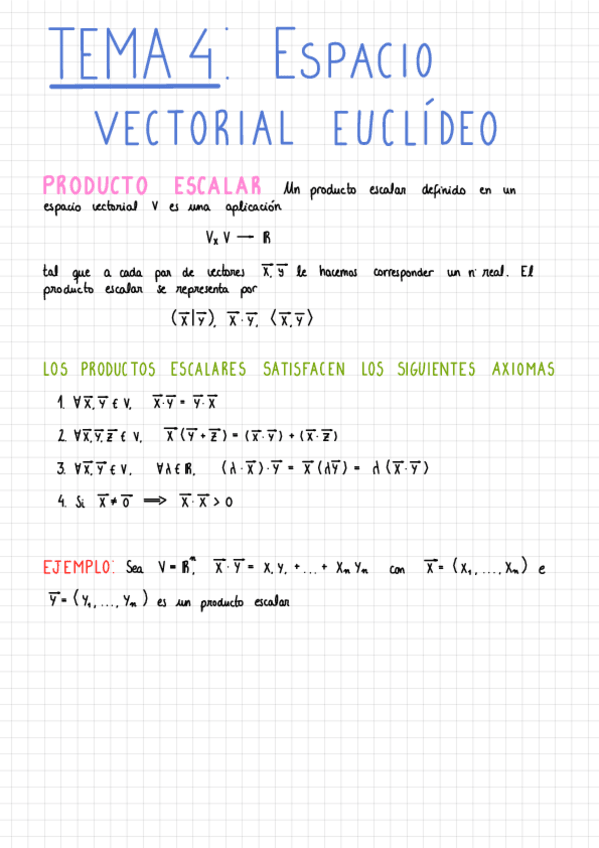 TEMA 4: ESPACIO
VECTORIAL EUCLÍDEO
PRODUCTO ESCALAR Un producto escalar definido en un
espacio vectorial V es una aplicación
V x V → R
tal que a cada par de vectores x⃗, y⃗ le hacemos corresponder un nº real. El
producto escalar se representa por
(x⃗|y⃗), x⃗·y⃗, ⟨x⃗,y⃗⟩
LOS PRODUCTOS ESCALARES SATISFACEN LOS SIGUIENTES AXIOMAS
1. ∀x⃗,y⃗ ∈ V, x⃗·y⃗ = y⃗·x⃗
2. ∀x⃗,y⃗,z⃗ ∈ V, x⃗(y⃗ + z⃗) = (x⃗·y⃗) + (x⃗·z⃗)
3. ∀x⃗,y⃗ ∈ V, ∀λ ∈ R, (λ·x⃗)·y⃗ = x⃗(λy⃗) = λ(x⃗·y⃗)
4. Si x⃗ ≠ 0⃗ ⟹ x⃗·x⃗ > 0
EJEMPLO: Sea V = Rⁿ, x⃗·y⃗ = x₁y₁ + ... + xₙyₙ con x⃗ = (x₁, ..., xₙ) e
y⃗ = (y₁, ..., yₙ) es un producto escalar